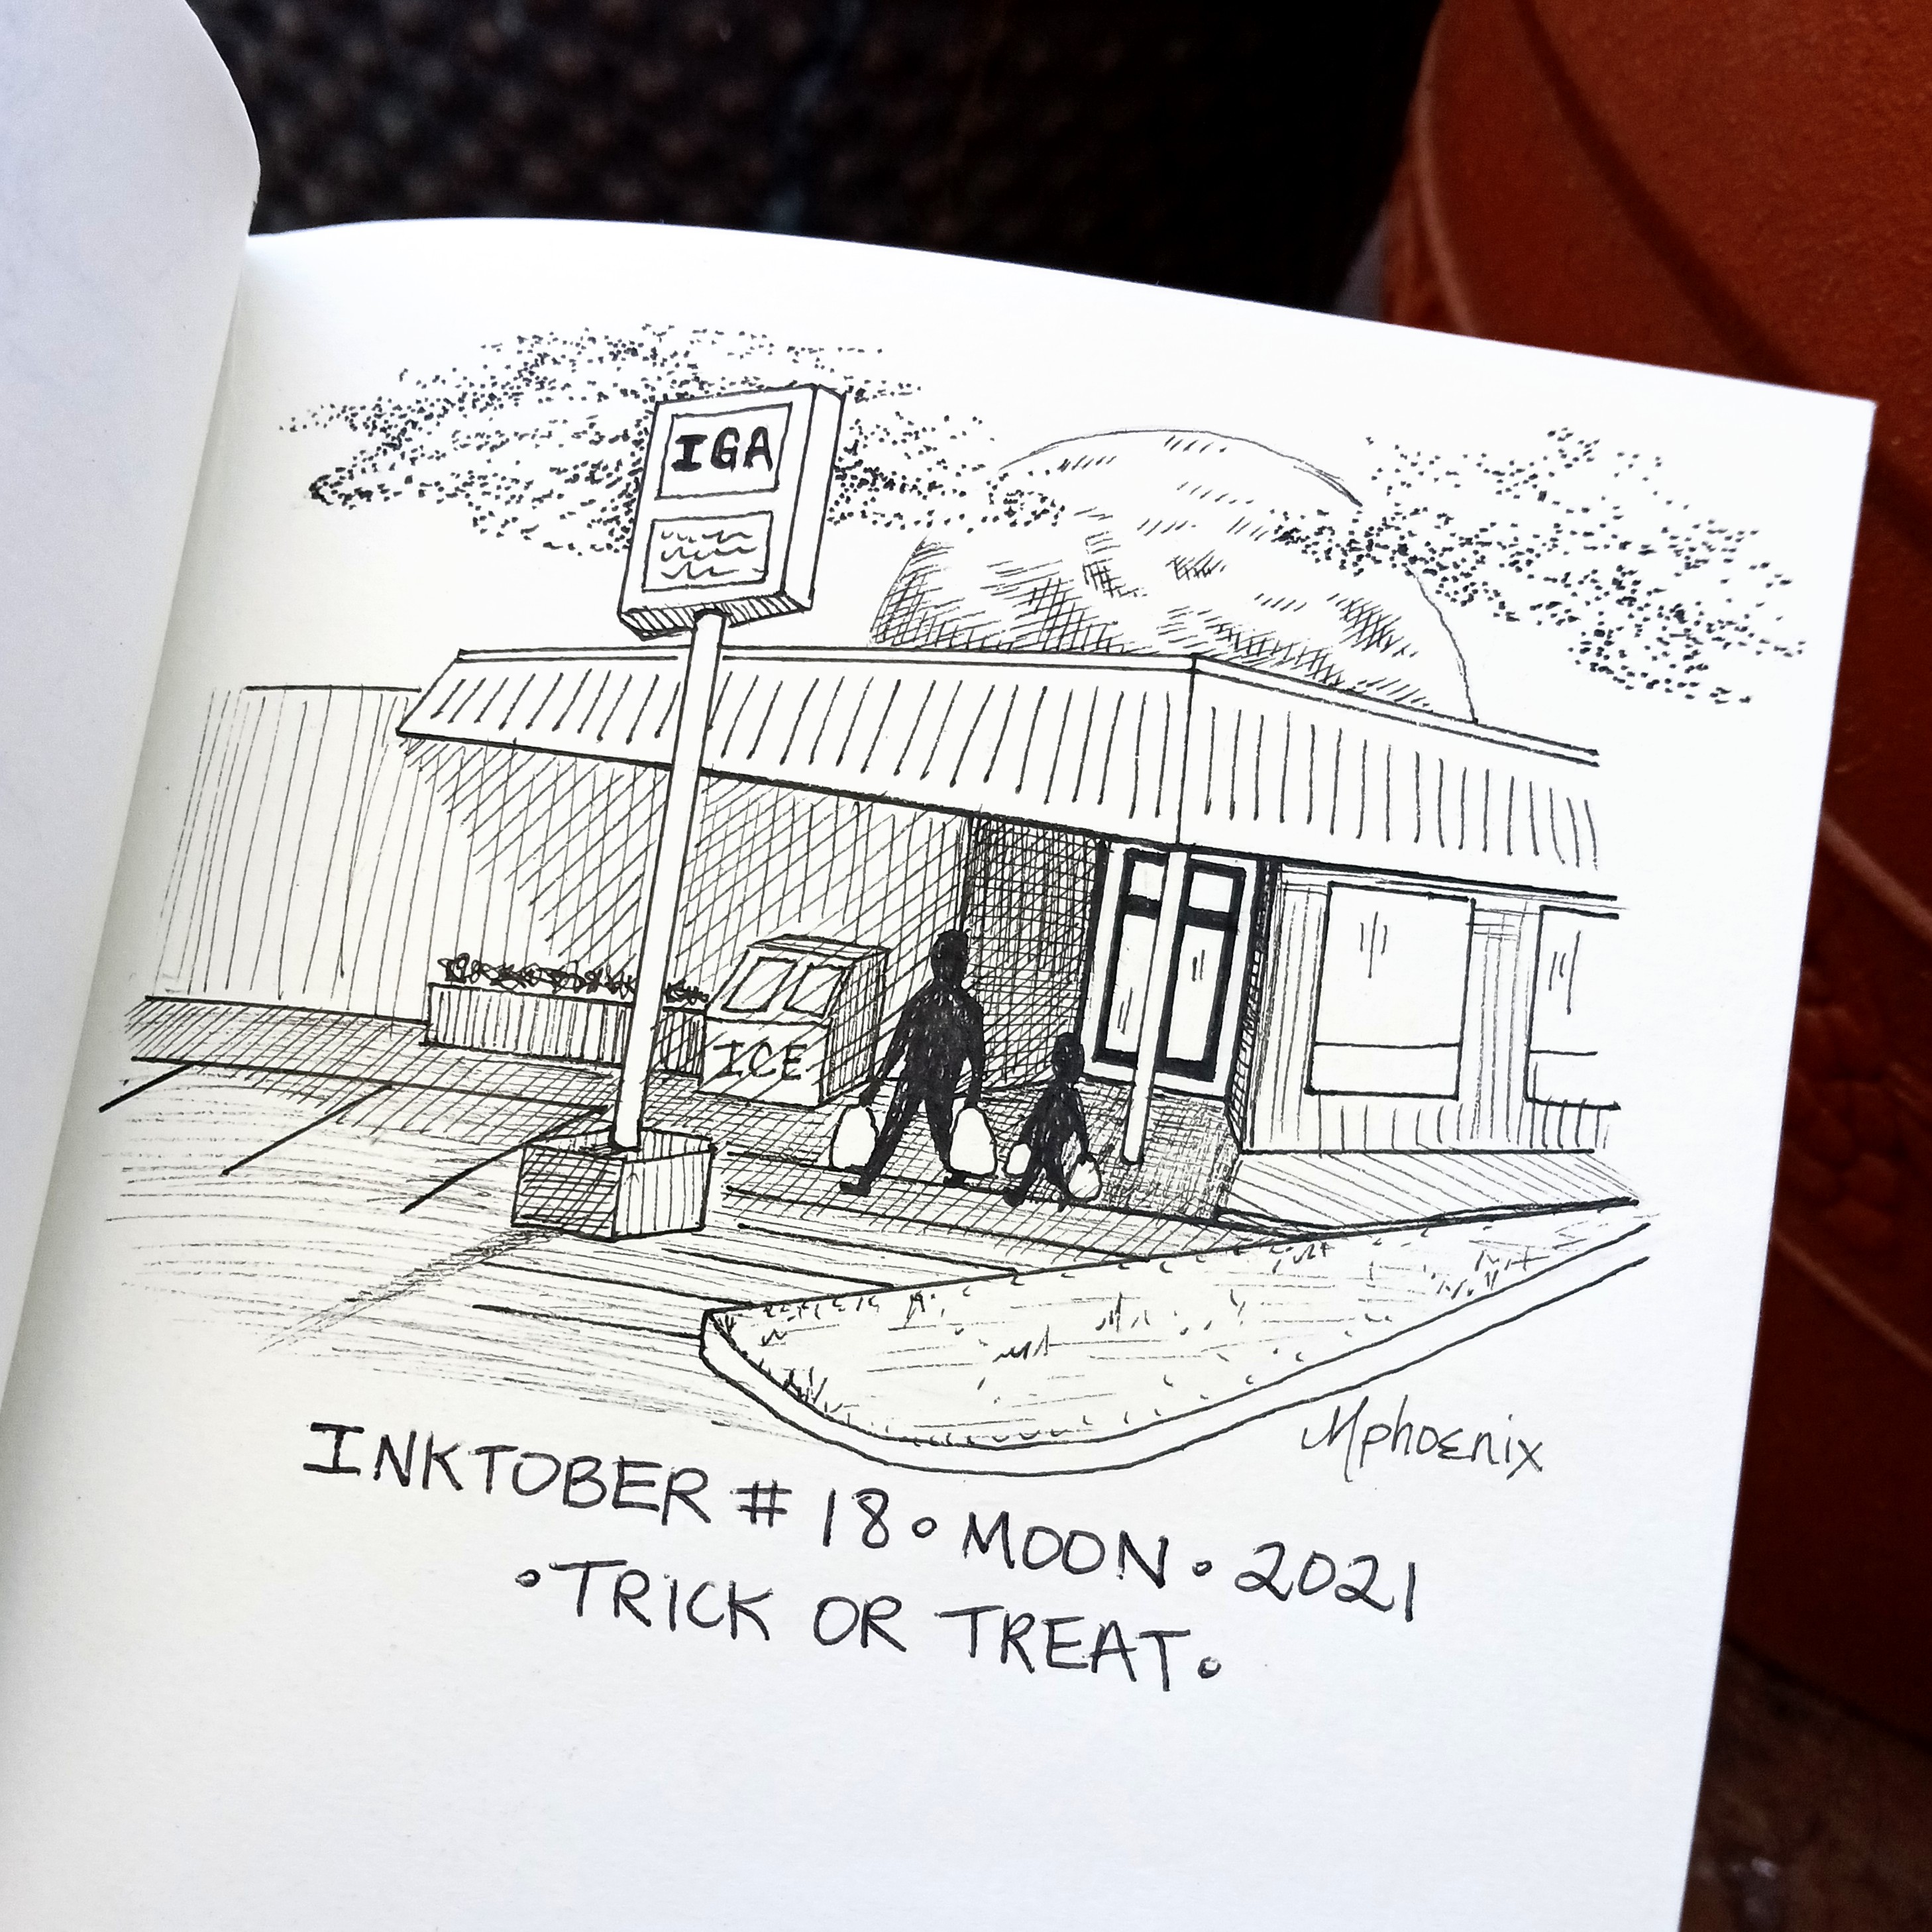 IGA
ICE
Mphoenix
INKTOBER # 18 • MOON • 2021
• TRICK OR TREAT •